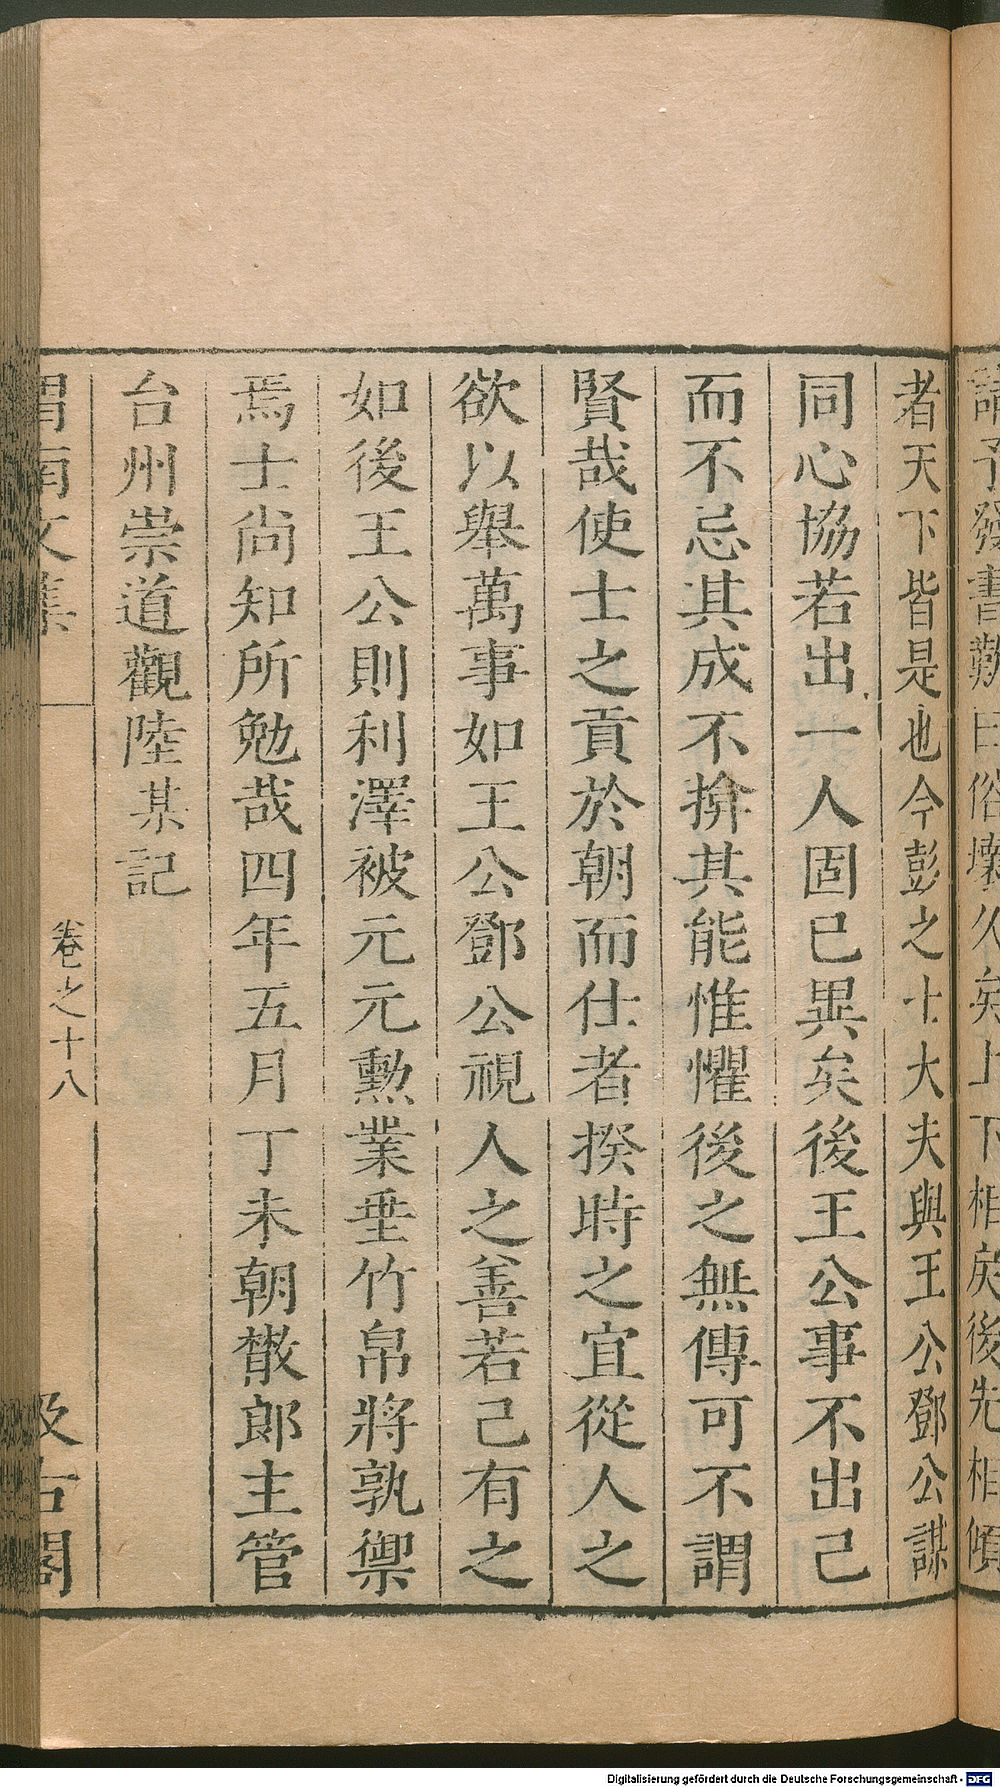 請予發書歎曰俗壞久矣上下相戾後先相傾
者天下皆是也今彭之士大夫與王公鄧公謀
同心協若出一人固已異矣後王公事不出己
而不忌其成不揜其能惟懼後之無傳可不謂
賢哉使士之貢於朝而仕者揆時之宜從人之
欲以舉萬事如王公鄧公視人之善若己有之
如後王公則利澤被元元勳業垂竹帛將孰禦
焉士尚知所勉哉四年五月丁未朝散郎主管
台州崇道觀陸某記
渭南文集
卷之十八
汲古閣
Digitalisierung gefördert durch die Deutsche Forschungsgemeinschaft - DFG